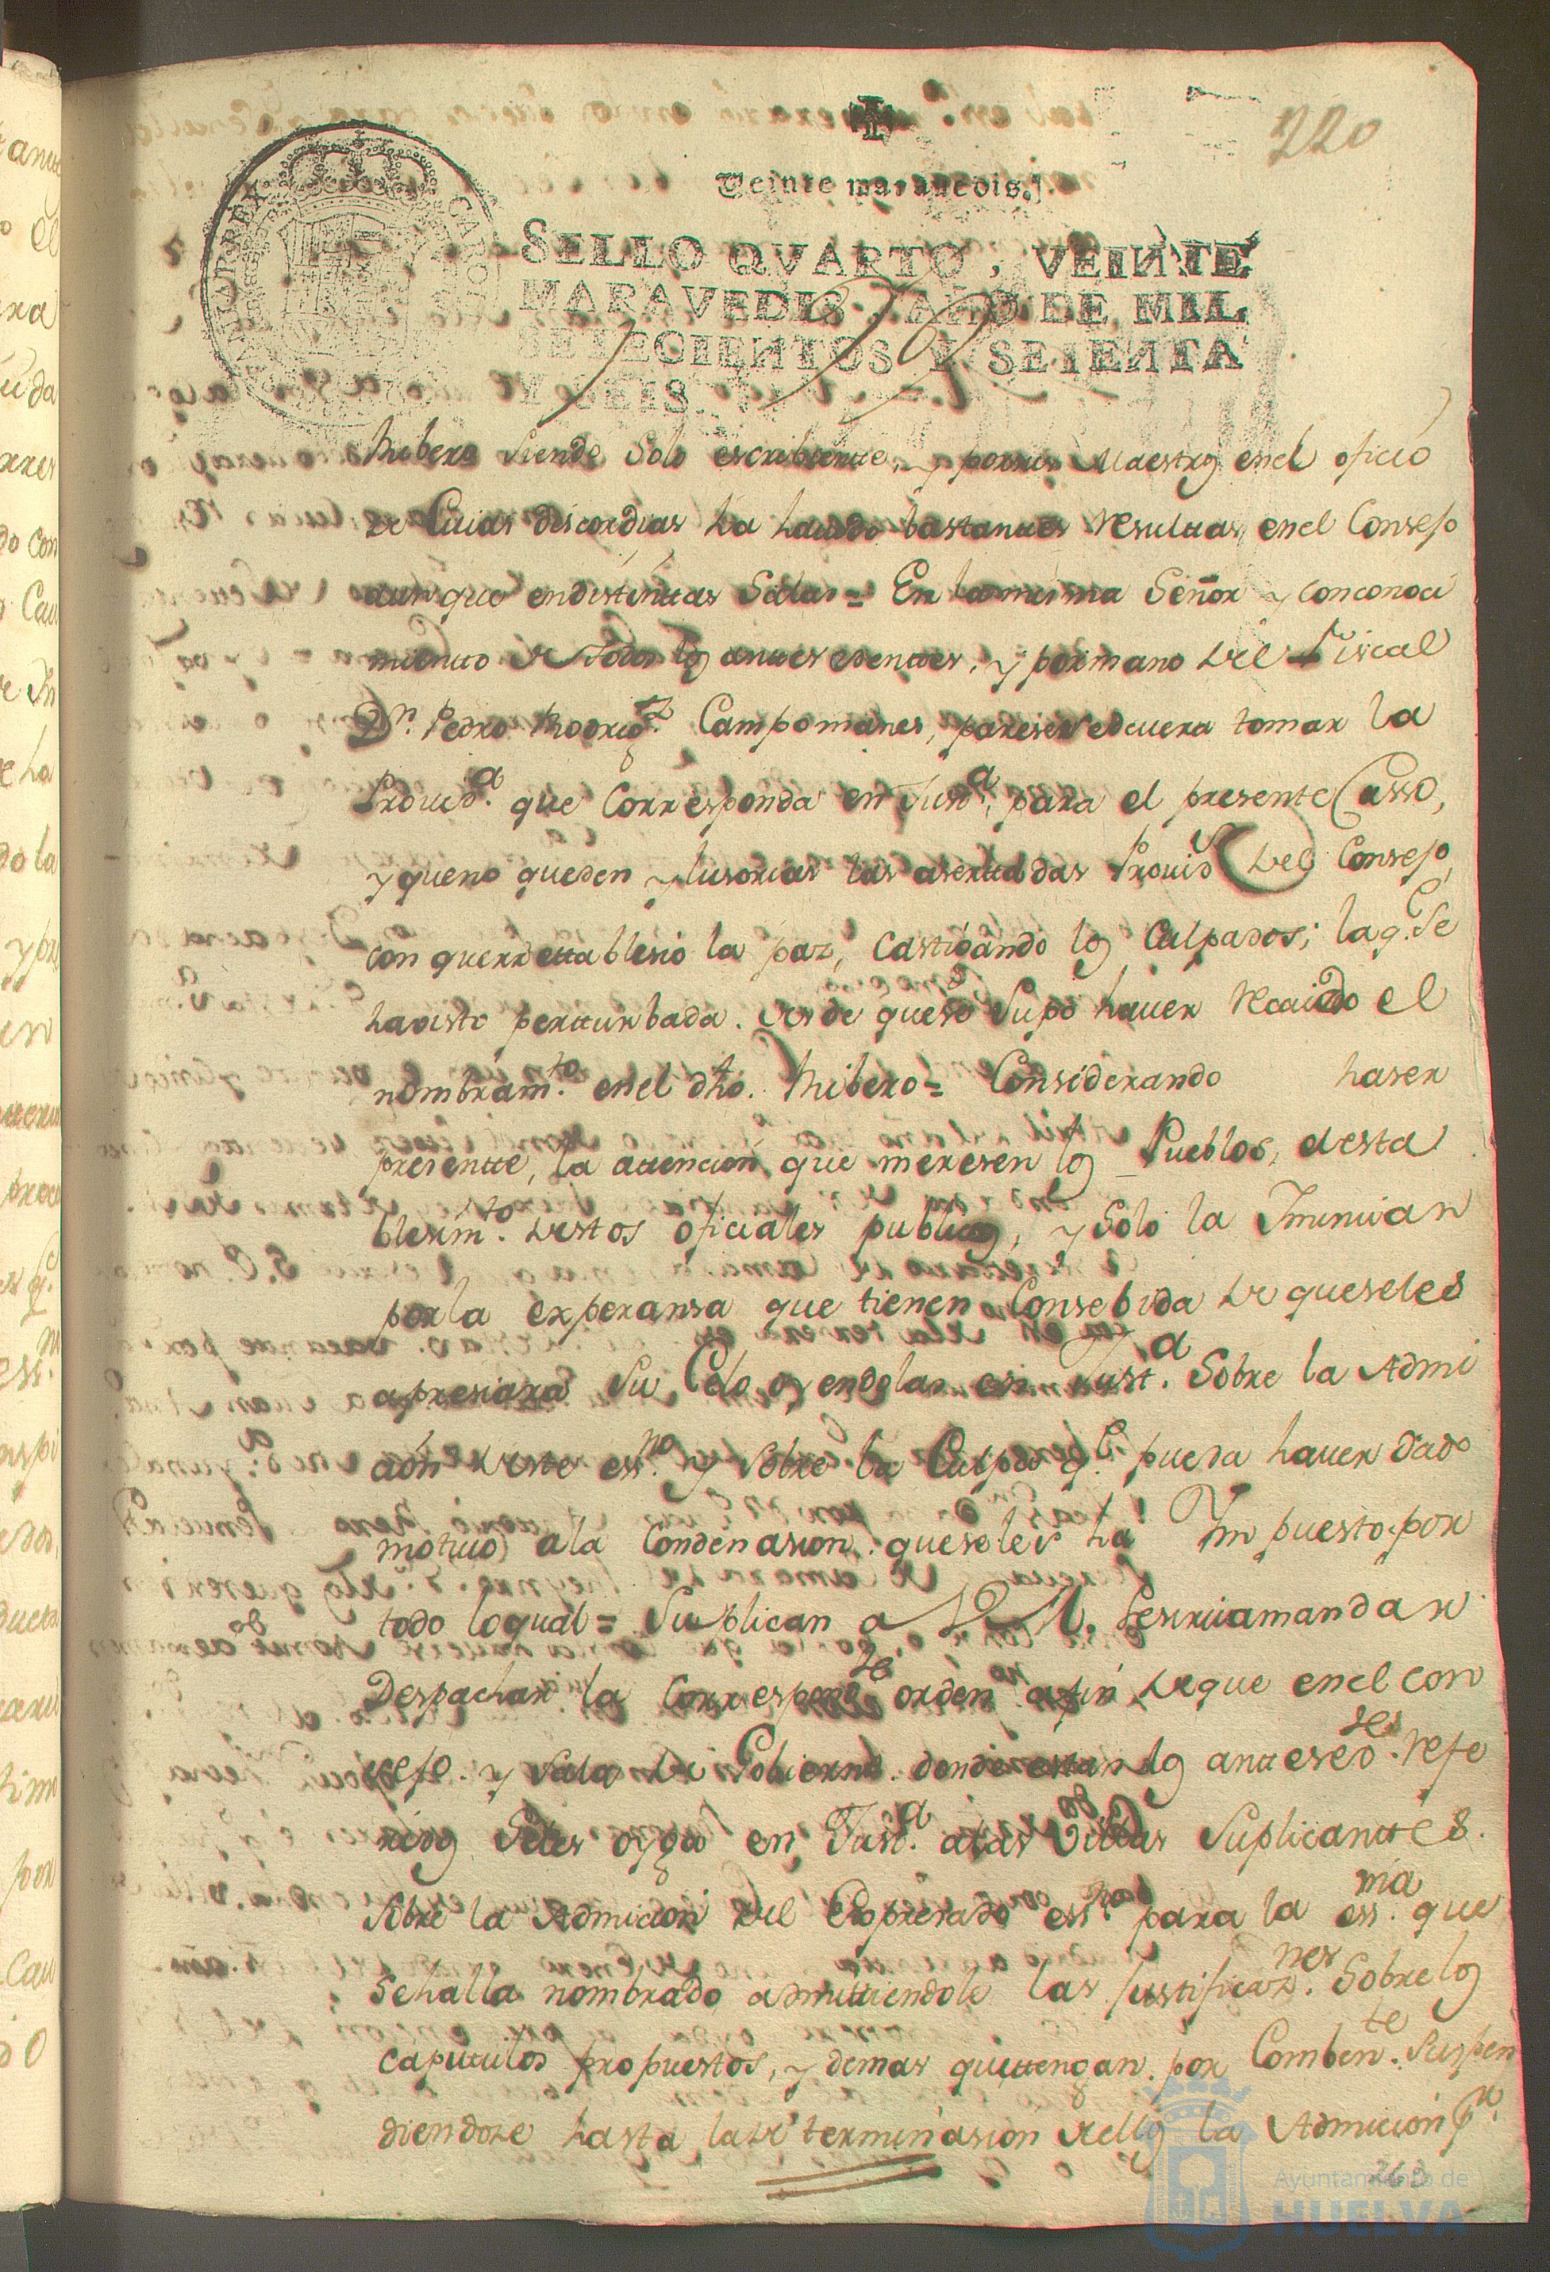 220
Veinte maravedis.
SELLO QVARTO, VEINTE
MARAVEDIS, AÑO DE MIL
SETECIENTOS Y SETENTA
Y SEIS.
Ribero siendo solo escribiente, y por sus Maestros enel oficio
de Cuias discordias ha hauido bastantes resultas, enel Consejo
aunque endistintas Salas = En la misma Señor y conconoci
miento de todos los antesedentes, y pormano del Fiscal
Dn. Pedro Rodrigz. Campomanes, parese sedeuera tomar la
Provida. que Corresponda en Justa. para el presente Casso,
y queno queden ylusorias las asertadas Provids del Consejo,
con que rrettablesio la paz, Castigando los Culpados; la q.e Se
ha visto perturbada. desde quese Supo hauer recaido el
nombramto. enel dho. Ribero = Considerando haser
presentte, la attencion que meresen los Pueblos, el esta
blesimto. destos oficiales publicos, y Solo la Ynunsian
porla experansa que tienen Consebida de queseles
apresiara Su Celo oyendolas en Justa. Sobre la Admi
cion deste essno. y Sobre la Culpa q.e pueda hauer dado
motiuo ala Condenasion queseles ha Ynpuesto por
todo loqual = Suplican a V. M. Sesirua mandar
Despachar la Correspondte orden afin deque enel con
sejo y Sala de Gobierno donde estan los anttesedtes. refe
ridos Seles oyga en Justa. alas Villas Suplicanttes.
Sobre la Admicion del Expresado essno. para la essma. que
Sehalla nombrado admittiendole las Justificaznes. Sobrelos
Capitulos propuestos, y demas quettengan por Combente. Suspen
diendose hasta la determinasion dello la Admicion pa.
262
Ayuntamiento de
HUELVA